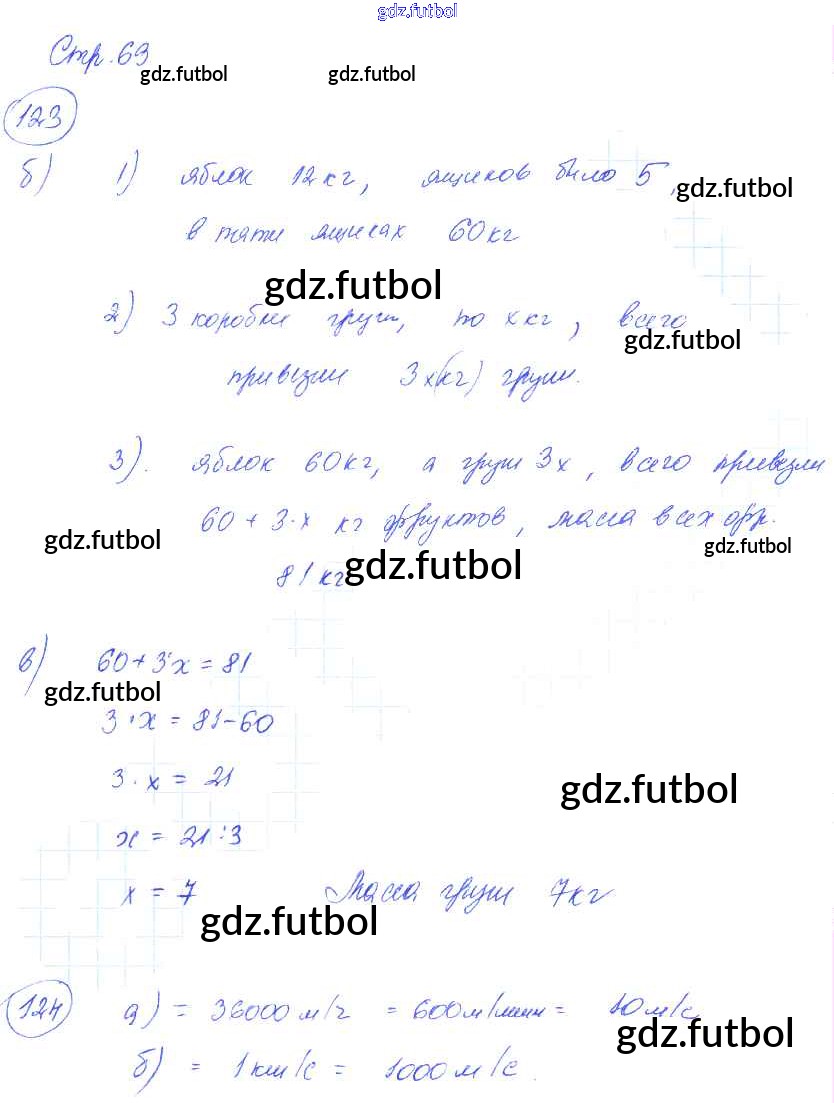 gdz.futbol
Стр. 69
gdz.futbol gdz.futbol
123
б) 1) яблок 12 кг, ящиков было 5,
gdz.futbol
в пяти ящиках 60 кг
gdz.futbol
2) 3 коробки груш, по x кг, всего
gdz.futbol
привезли 3x(кг) груш.
3). яблок 60 кг, а груш 3x, всего привезли
60 + 3·x кг фруктов, масса всех фр.
gdz.futbol gdz.futbol
81 кг
gdz.futbol
в) 60 + 3·x = 81
gdz.futbol
3·x = 81-60
3·x = 21
gdz.futbol
x = 21:3
x = 7 Масса груш 7 кг
gdz.futbol
124 а) = 36000 м/ч = 600 м/мин = 10 м/с
gdz.futbol
б) = 1 км/с = 1000 м/с.